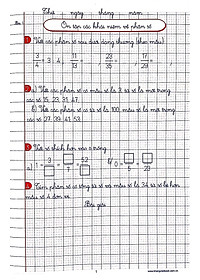 Thứ ngày tháng năm
Ôn tập các khái niệm về phân số
Viết các phân số sau dưới dạng thương (theo mẫu)
3/4 = 3 : 4 ; 11/13 = ; 23/35 = ; 17/29 = ;
a) Viết các phân số có mẫu số là 3 và tử số là mỗi
các số 15, 23, 31, 47
b) Viết các phân số có tử số là 100 mẫu số là mỗi trong
các số 27, 39, 41, 53
Viết số thích hợp vào ô trống
a) 1 = 3/□ = □/7 = 52/□ b) 0 = □/5 = □/23
Tìm phân số có tổng tử số và mẫu số là 34 tử số bé hơn
mẫu số 4 đơn vị
Bài giải
1